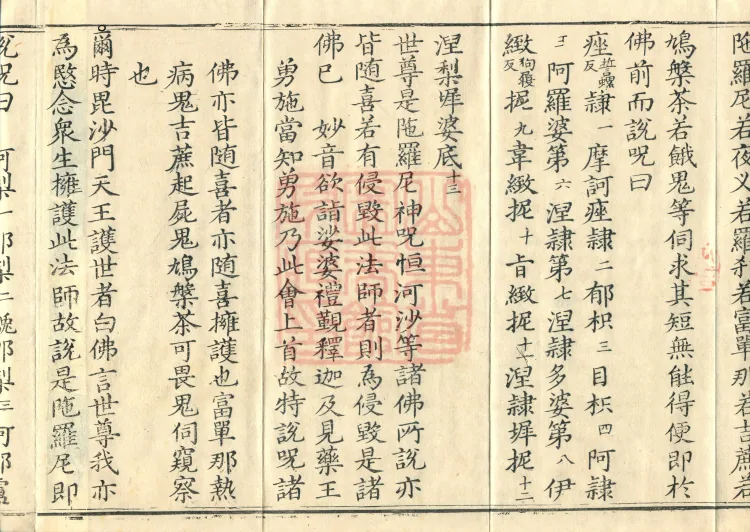 陁羅尼若夜叉若羅刹若富單那若吉蔗若
鳩槃茶若餓鬼等伺求其短無能得便即於
佛前而說呪曰
痤誓螺反隷一摩訶痤隷二郁枳三目枳四阿隷
五阿羅婆第六涅隷第七涅隷多婆第八伊
緻狗履反抳九韋緻抳十旨緻抳十一涅隷墀抳十二
涅梨墀婆底十三
世尊是陁羅尼神呪恒河沙等諸佛所說亦
皆隨喜若有侵毀此法師者則為侵毀是諸
佛已 妙音欲詣娑婆禮覲釋迦及見藥王
勇施當知勇施乃此會上首故特說呪諸
佛亦皆随喜者亦随喜擁護也富單那熱
病鬼吉蔗起屍鬼鳩槃茶可畏鬼伺窺察
也
爾時毘沙門天王護世者白佛言世尊我亦
為愍念衆生擁護此法師故說是陁羅尼即
說呪曰 阿梨一那梨二㝹那梨三阿那盧